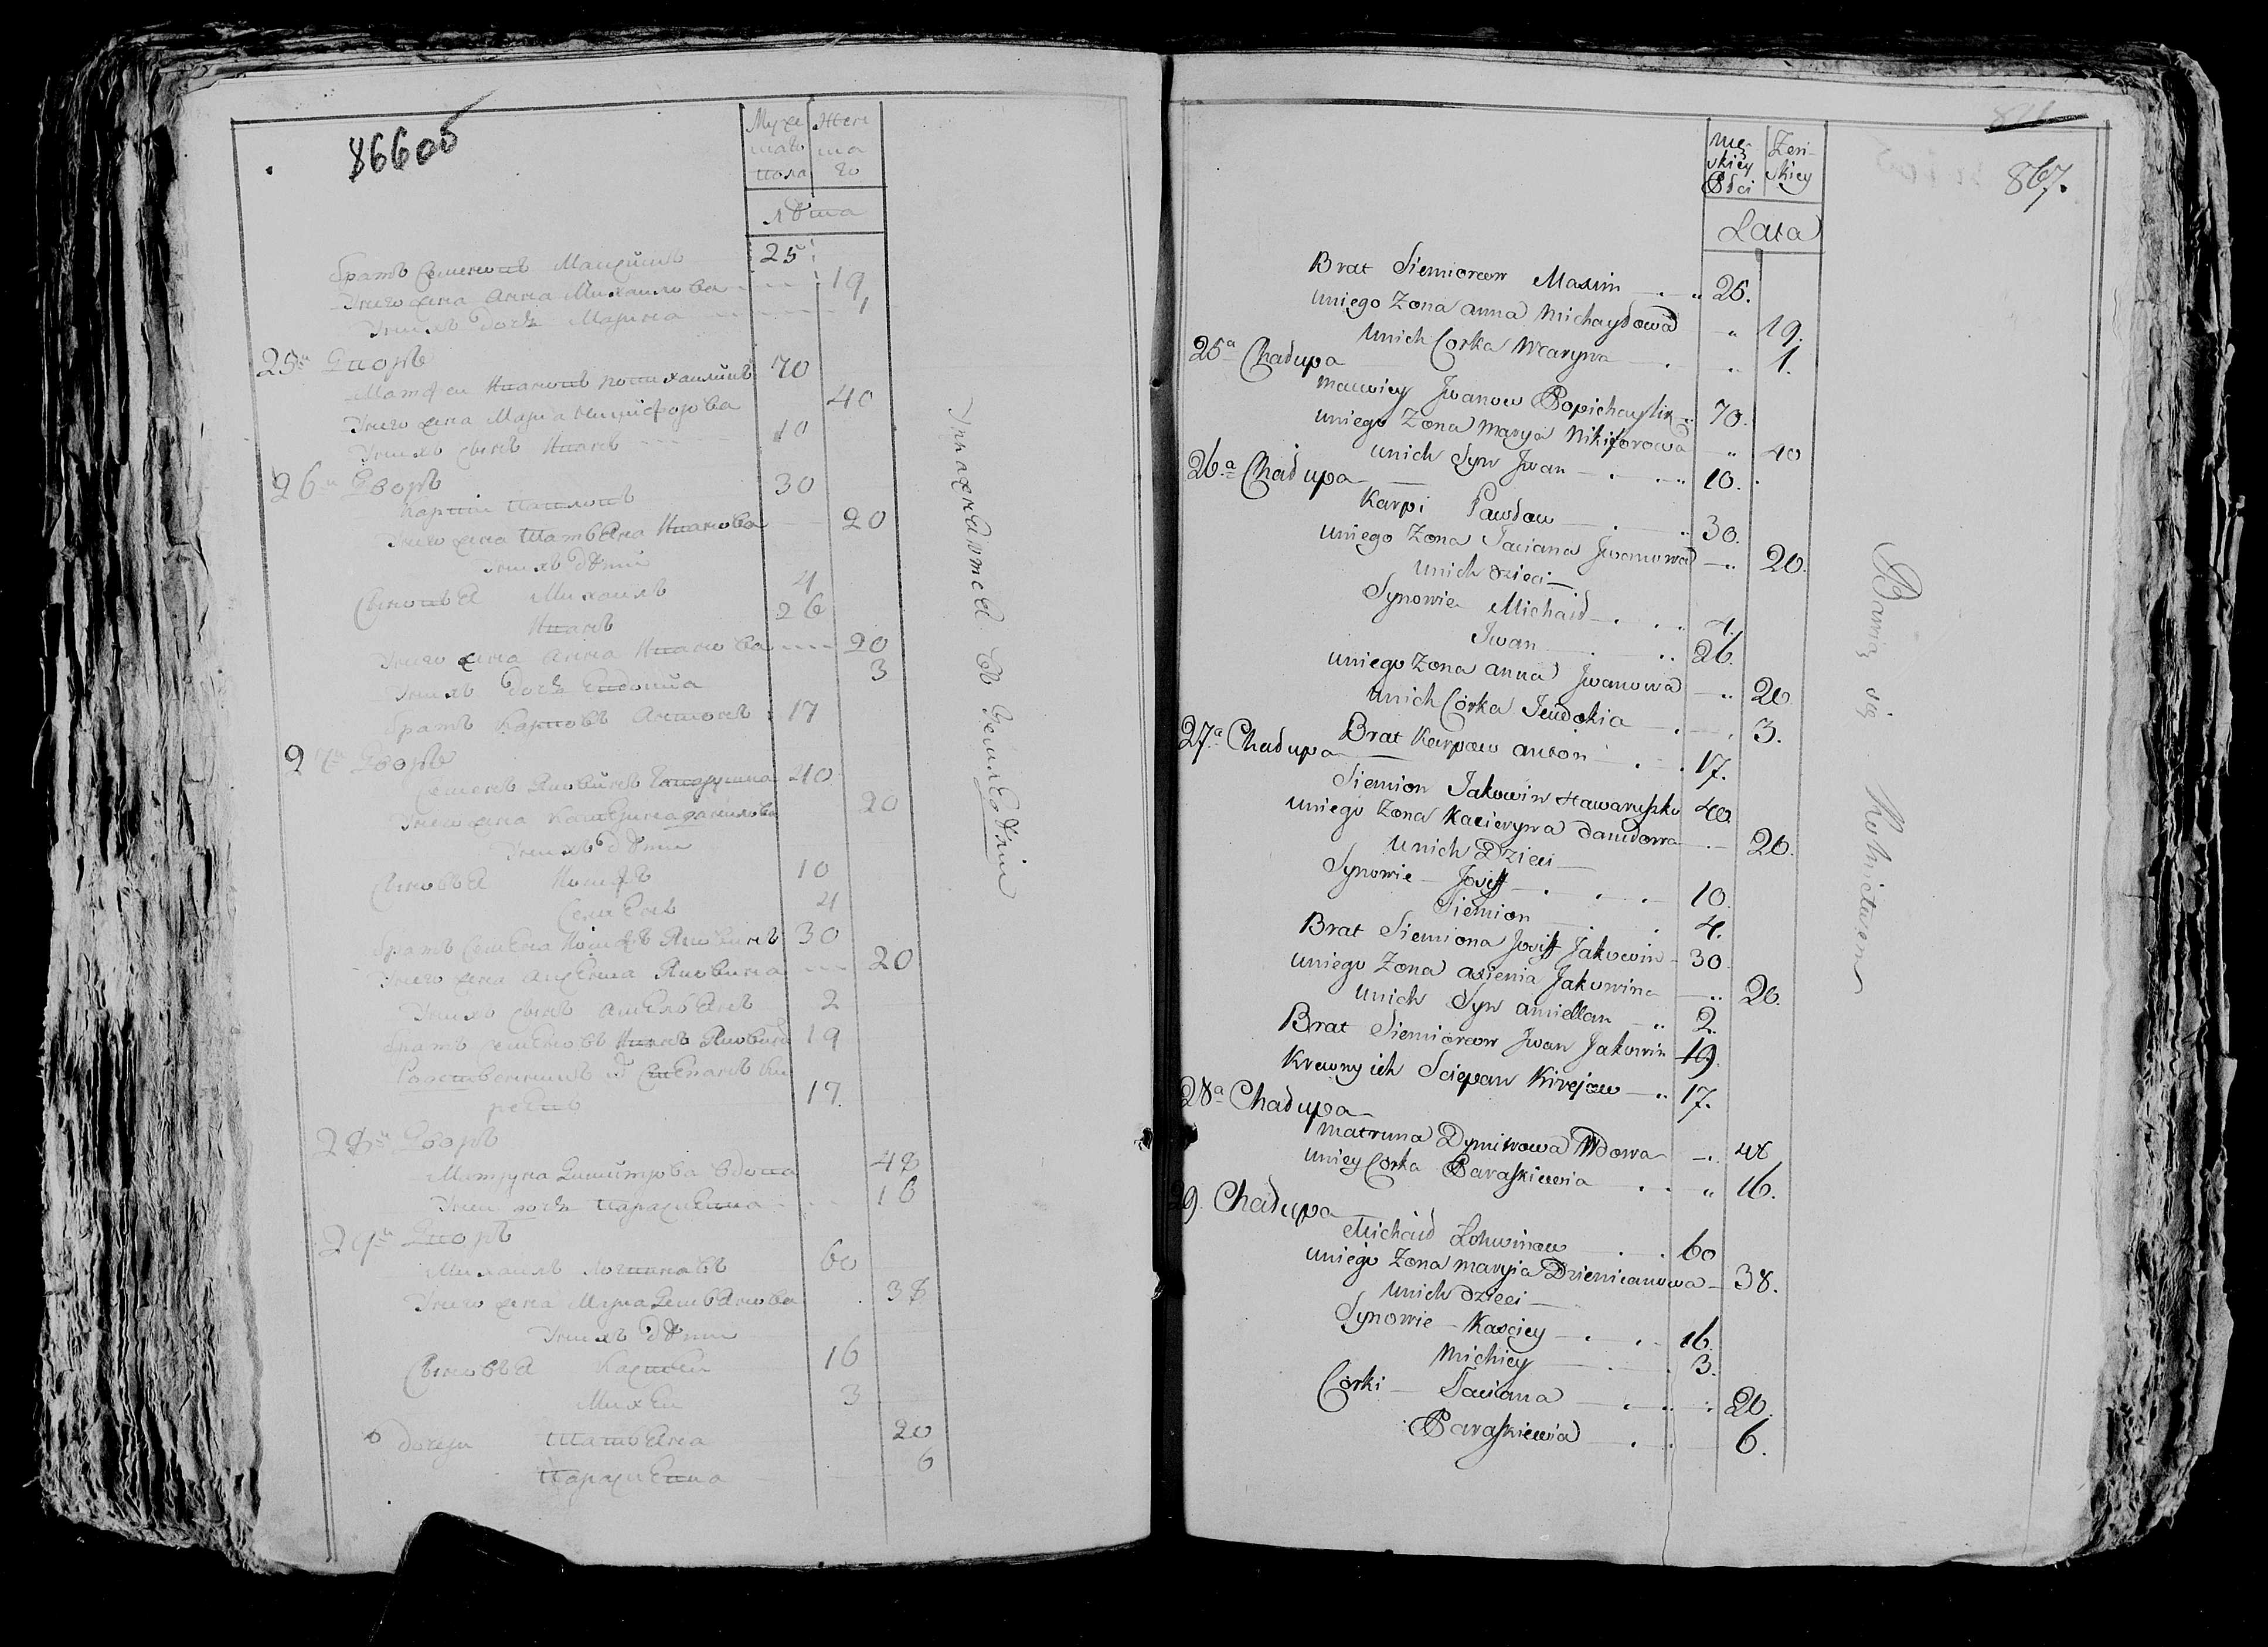 866об
Муже
скаго
пола
Женс
ка
го
лѣта
братъ Семеновъ Максимъ 25
у него жена Анна Михайлова 19
у нихъ дочь Марина 1
25й Дворъ
Матфей Ивановъ 70
у него жена Марья Никифорова 40
у нихъ сынъ Иванъ 10
26й Дворъ
Карпий Павловъ 30
у него жена Татьяна Иванова 20
у нихъ дѣти
Сыновья Михаилъ 4
Иванъ 26
у него жена Анна Иванова 20
у нихъ дочь Евдокия 3
братъ Карповъ Антонъ 17
27й Дворъ
Семенъ Яковинъ 40
у него жена Катерина Данилова 20
у нихъ дѣти
Сыновья Иосифъ 10
Семенъ 4
братъ Семена Иосифъ Яковинъ 30
у него жена Аксенья Яковина 20
у нихъ сынъ Амельянъ 2
братъ Семеновъ Иванъ Яковинъ 19
17
28й Дворъ
Матруна Димитрова вдова 48
у ней дочь Параскевия 16
29й Дворъ
Михаилъ Логвиновъ 60
у него жена Марья Демьянова 38
у нихъ дѣти
Сыновья 16
Михей 3
дочери Татьяна 20
Параскевия 6
Упражняются въ земледѣлии
867.
Mę-
skiey
Płci
Żeń-
skiey
Lata
Brat Siemionow Maxim 25.
u niego Żona Anna Michayłowa 19.
u nich Corka Maryna 1.
25a Chałupa
Mauwiey Jwanow Popichaylin 70.
u niego Żona Marya Nikiforowa 40
u nich Syn Jwan 10.
26a Chałupa
Karpi Pawłow 30.
u niego Żona Taciana Jwanowa 20.
u nich dzieci
Synowie Michaił 4.
Jwan 26.
u niego Żona Anna Jwanowa 20
u nich Córka Jeudokia 3.
Brat Karpow Anton 17.
27a Chałupa
Siemion Jakowin Hawaruszko 40.
u niego Żona Kacieryna Daniłowa 20.
u nich Dzieci
Synowie Josiff 10.
Siemion 4.
Brat Siemiona Josiff Jakowin 30
u niego Żona Axienia Jakowina 20.
u nich Syn Amiellan 2.
Brat Siemionow Jwan Jakowin 19.
Krewny ich Sciepan Kirejow 17.
28a Chałupa
Matruna Dymitrowa Wdowa 48
u niey Corka Paraskiewia 16.
29. Chałupa
Michaił Łohwinow 60
u niego Żona Maryia Dziemianowa 38.
u nich dzieci
Synowie Kasciey 16.
Michiey 3.
Corki Taciana 20.
Paraskiewia 6.
Bawią się Rolnictwem